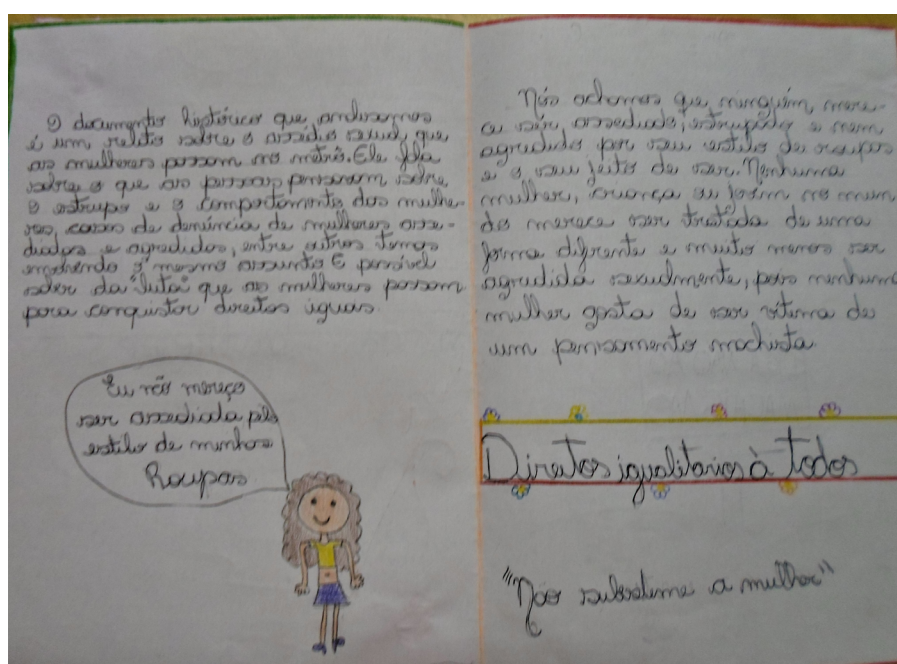 O documento histórico que analisamos
é um relato sobre o assédio sexual que
as mulheres passam no metrô. Ele fala
sobre o que as pessoas pensaram sobre
o estrupo e o comportamento das mulhe-
res, casos de denúncia de mulheres asse-
diadas e agredidas, entre outros temas
envolvendo o mesmo assunto E possível
saber da "luta" que as mulheres passam
para conquistar direitos iguas.
Eu não mereço
ser assediada pelo
estilo de minhas
Roupas
Nós achamos que ninguém mere-
ce ser assediado, estrupado e nem
agredido por seu estilo de roupas
e o seu jeito de ser. Nenhuma
mulher, criança ou jovem no mun-
do merece ser tratada de uma
forma difrente e muito menos ser
agredida sexualmente, pois nenhuma
mulher gosta de ser vítima de
um pensamento machista.
Diretos igualitarios à todos
"Não subestime a mulher"